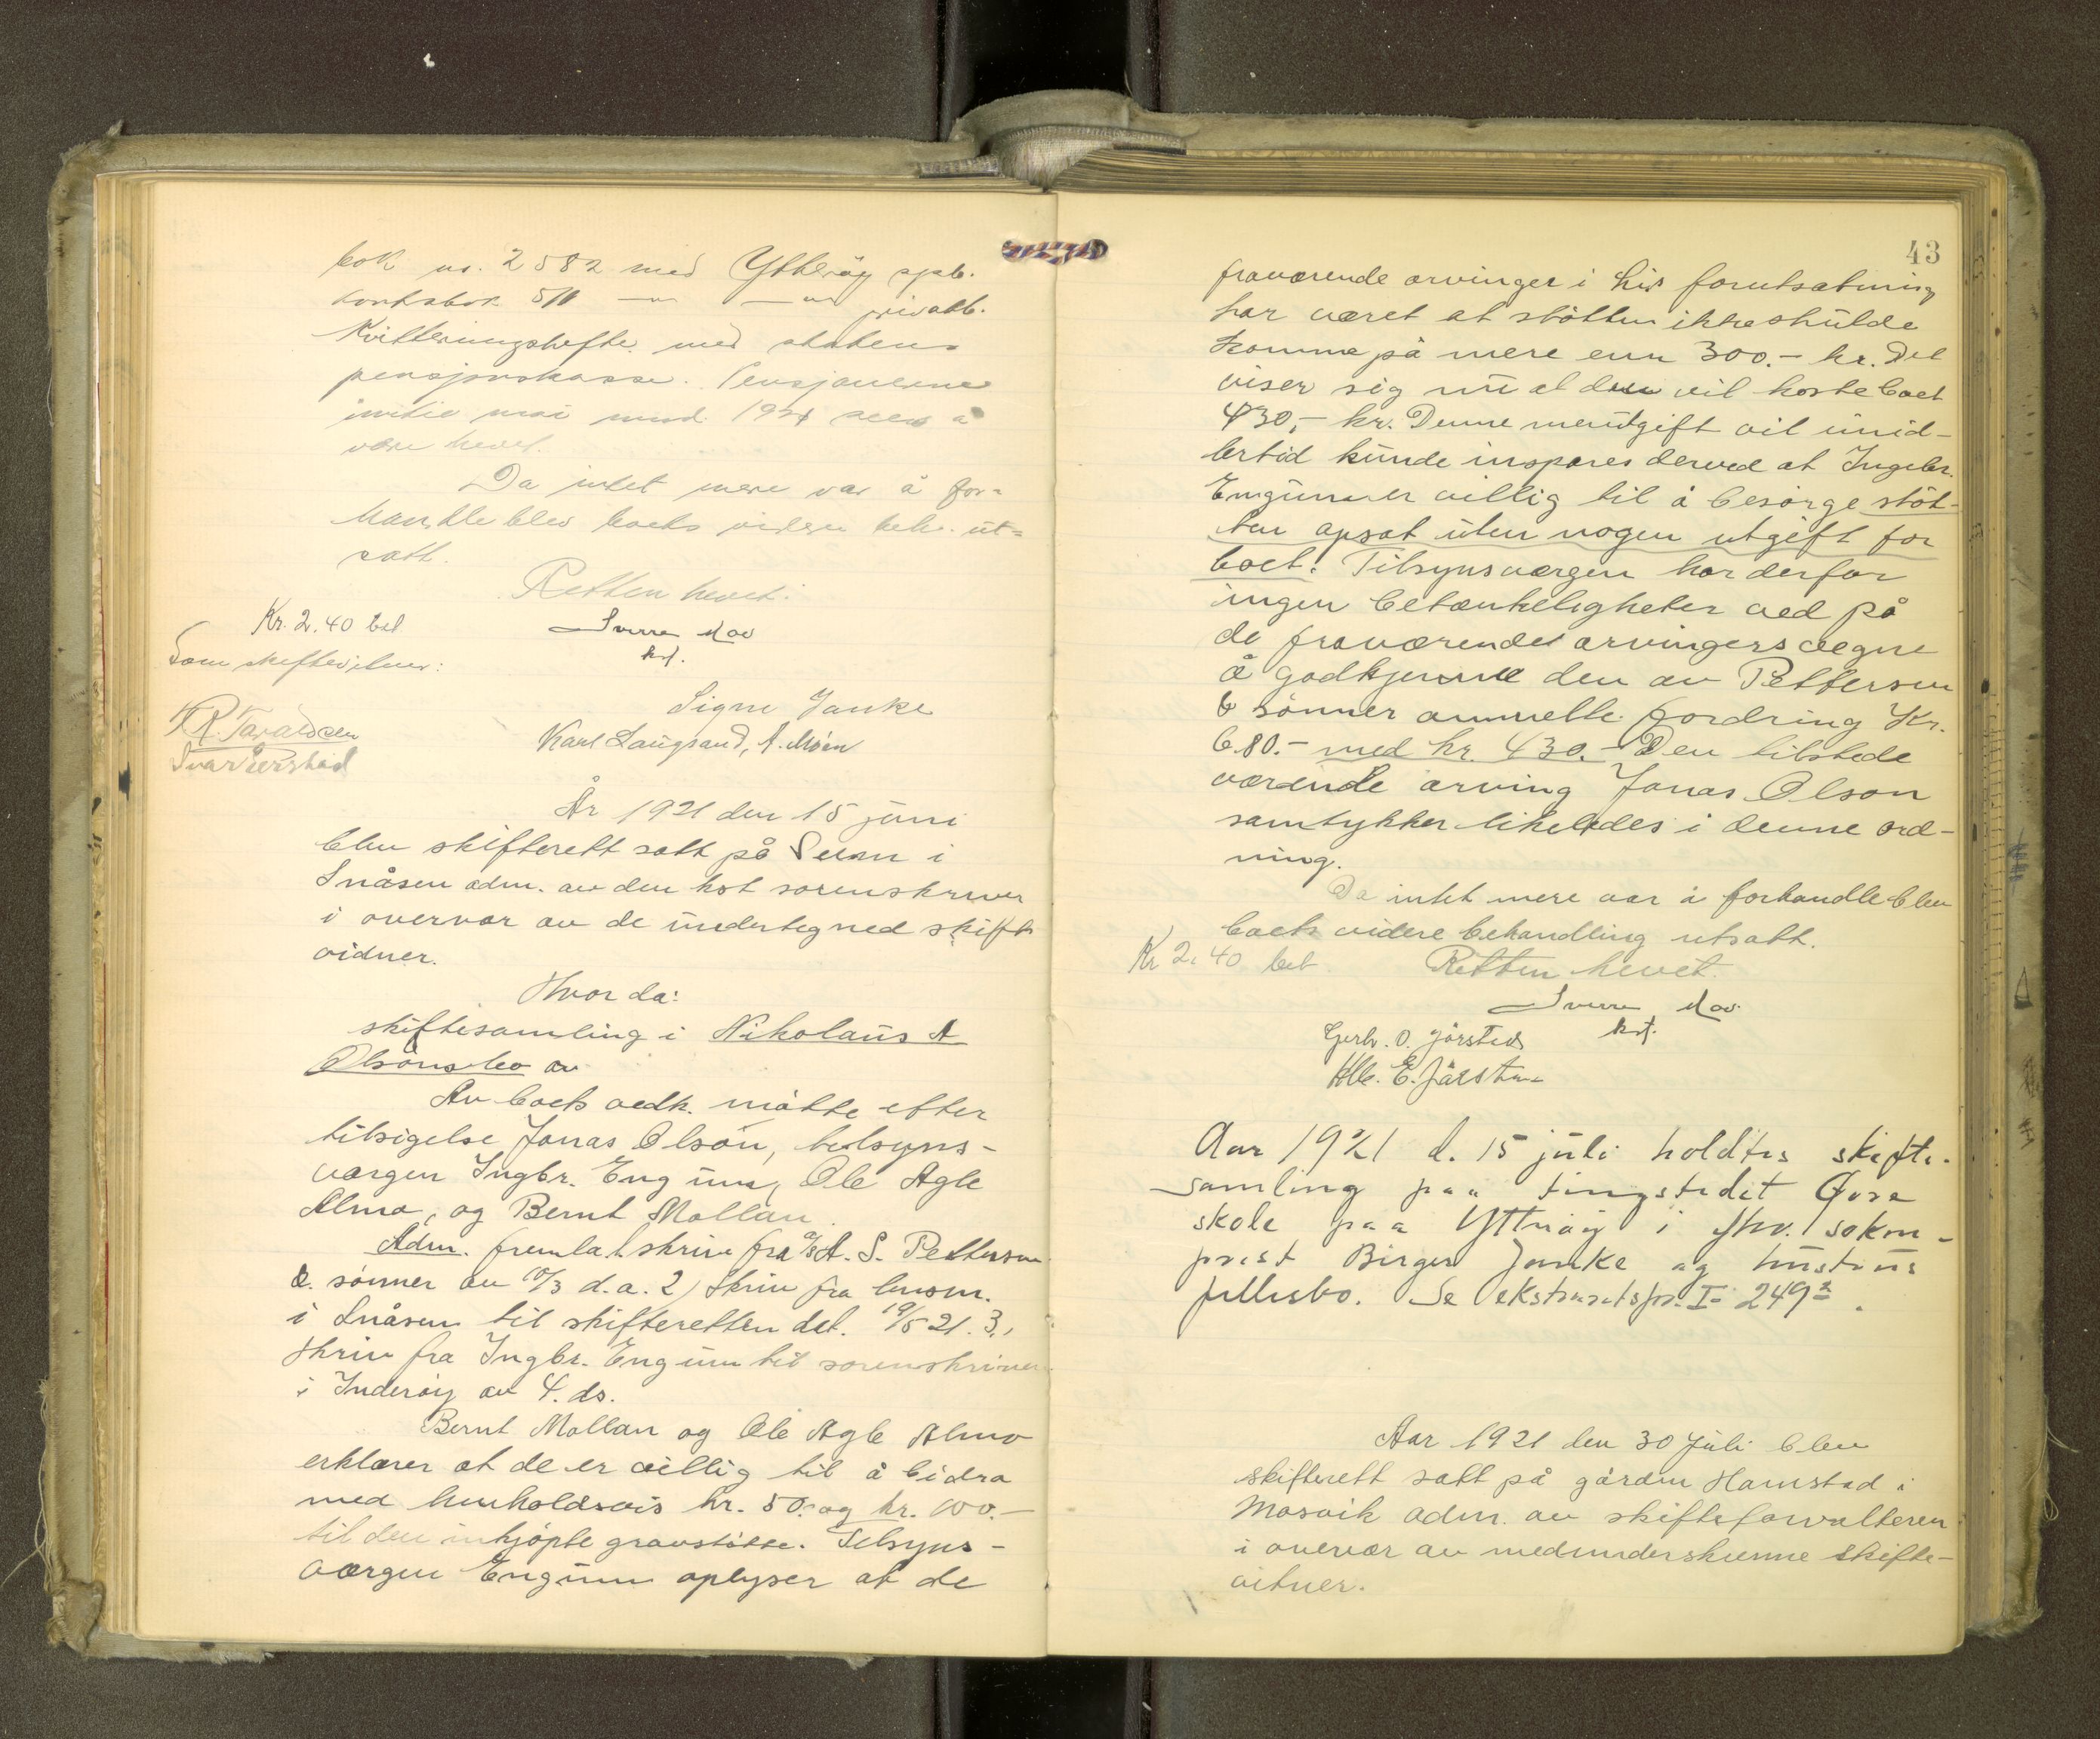 bok no. 2582 med Ytterøy spb.
kontrabok 511 — " — — " — privatb.
Kvitteringshefte med statens
pensjonskasse. Pensjonene
intil mai mnd. 1921 sees å
være hevet.
Da intet mere var å for-
handle blev boets videre beh. ut-
satt.
Retten hevet.
Kr. 2.40 bet
Sverre Mo
kst.
Som skiftevitner:
Signe Janke
K R. Tavaldsen
Karl Langsand, A. Moen
Ivar
År 1921 den 15 juni
blev skifterett satt på Seem i
Snåsen adm. av den kst sorenskriver
i overvær av de undertegned skift
vidner.
Hvor da:
skiftesamling i Nikolaus A
Olsöns bo av
Av boets vedk. måtte efter
tilsigelse Jonas Olsön, tilsyns-
værgen Ingbr. Engum, Ole Agle
Almo, og Bernt Mollan.
Adm. fremlat skriv fra A/S A. S. Pettersen
& sønner av 10/3 d.a. 2) skriv fra lensm.
i Snåsen til skifteretten dat. 19/5 21. 3.,
skriv fra Ingbr. Engum til sorenskriver
i Inderöy av 4. ds.
Bernt Mollan og Ole Agle Almo
erklærer at de er villig til å bidra
med henholdsvis kr. 50.- og kr. 100.-
til den inkjöpte gravstötte. Tilsyns-
værgen Engum oplyser at de
43
fraværende arvinger i sin forutsætning
har været at stötten ikke skulde
komme på mere enn 300.- kr. Det
viser sig nu at den vil koste boet
430,- kr. Denne merutgift vil imid-
lertid kunde inspares derved at Ingebr.
Engum er villig til å besörge stöt-
ten opsat uten nogen utgift for
boet. Tilsynsværgen har derfor
ingen betænkeligheter ved på
de fraværendes arvingers vegne
å godkjenne den av Pettersen
& sönner anmeldte fordring Kr.
680.- med kr. 430.- Den tilstede
værende arving Jonas Olson
samtykker likeledes i denne ord-
ning.
Da intet mere var å forhandle blev
boets videre behandling utsatt.
Kr 2.40 bet. Retten hevet.
Sverre Mo
kst.
Gerh. O. Jörstad
E. Jörstad
Aar 1921 d. 15 juli holdtes skifte-
samling paa tingstedet
skole paa Ytteröy i fhv. sokne-
prest Birger Janke og hustrus
fellesbo. Se ekstraretspr. I 249
Aar 1921 den 30 Juli blev
skifterett satt på gården Hamstad i
Mosvik adm. av skifteforvalteren
i overvær av medunderskrevne skifte-
vitner.